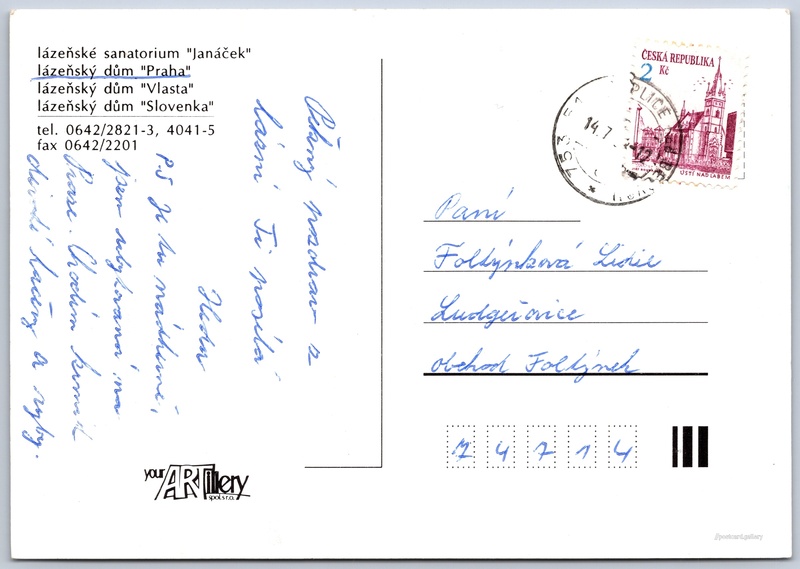 lázeňské sanatorium "Janáček"
lázeňský dům "Praha"
lázeňský dům "Vlasta"
lázeňský dům "Slovenka"
tel. 0642/2821-3, 4041-5
fax 0642/2201
Pěkný pozdrav z
lázní Ti posílá
Heda
P.S Je tu nádherně,
jsem ubytovaná na
Praze. Chodím krmit
divoké kačeny a ryby.
your ARTillery
spol. s r.o.
ČESKÁ REPUBLIKA
2 Kč
ÚSTÍ NAD LABEM
753 51
TEPLICE
14.7.
Paní
Foltýnková Lidie
Ludgeřovice
obchod Foltýnek
74714
//postcard.gallery